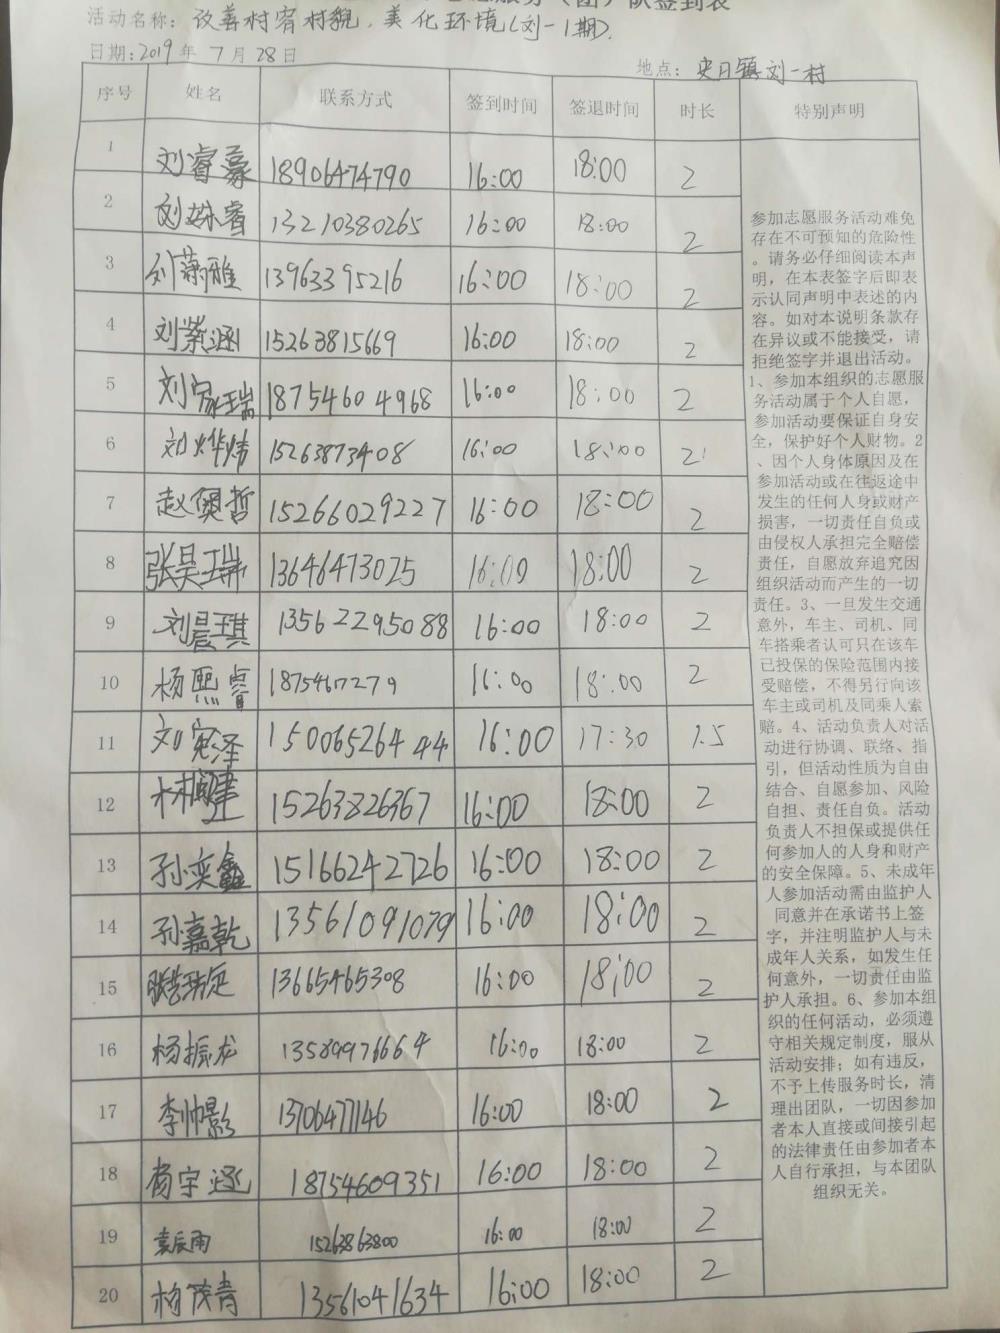 服务（团）队签到表
活动名称：改善村容村貌，美化环境（刘一1期）.
日期：2019年 7月 28日
地点：史口镇刘一村
序号 姓名 联系方式 签到时间 签退时间 时长 特别声明
1 刘睿 18906474790 16:00 18:00 2
2 刘姝睿 13210380265 16:00 18:00 2
3 刘 雅 13963395216 16:00 18:00 2
4 刘紫涵 15263815669 16:00 18:00 2
5 刘家瑞 18754604968 16:00 18:00 2
6 刘烨炜 15263873408 16:00 18:00 2
7 赵奥哲 15266029227 16:00 18:00 2
8 张昊瑞 13646473025 16:00 18:00 2
9 刘晨琪 13562295088 16:00 18:00 2
10 杨熙睿 1875467279 16:00 18:00 2
11 刘宪泽 15006526444 16:00 17:30 1.5
12 15263826367 16:00 18:00 2
13 孙奕鑫 15166242726 16:00 18:00 2
14 孙嘉乾 13561091079 16:00 18:00 2
15 13665465308 16:00 18:00 2
16 杨振龙 13589976664 16:00 18:00 2
17 李帅影 13706477146 16:00 18:00 2
18 杨宇涵 18754609351 16:00 18:00 2
19 袁辰雨 15263863800 16:00 18:00 2
20 杨茂青 13561041634 16:00 18:00 2
参加志愿服务活动难免
存在不可预知的危险性
。请务必仔细阅读本声
明，在本表签字后即表
示认同声明中表述的内
容。如对本说明条款存
在异议或不能接受，请
拒绝签字并退出活动。
1、参加本组织的志愿服
务活动属于个人自愿，
参加活动要保证自身安
全，保护好个人财物。2
、因个人身体原因及在
参加活动或在往返途中
发生的任何人身或财产
损害，一切责任自负或
由侵权人承担完全赔偿
责任，自愿放弃追究因
组织活动而产生的一切
责任。3、一旦发生交通
意外，车主、司机、同
车搭乘者认可只在该车
已投保的保险范围内接
受赔偿，不得另行向该
车主或司机及同乘人索
赔。4、活动负责人对活
动进行协调、联络、指
引，但活动性质为自由
结合、自愿参加、风险
自担、责任自负。活动
负责人不担保或提供任
何参加人的人身和财产
的安全保障。5、未成年
人参加活动需由监护人
同意并在承诺书上签
字，并注明监护人与未
成年人关系，如发生任
何意外，一切责任由监
护人承担。6、参加本组
织的任何活动，必须遵
守相关规定制度，服从
活动安排；如有违反，
不予上传服务时长，清
理出团队，一切因参加
者本人直接或间接引起
的法律责任由参加者本
人自行承担，与本团队
组织无关。